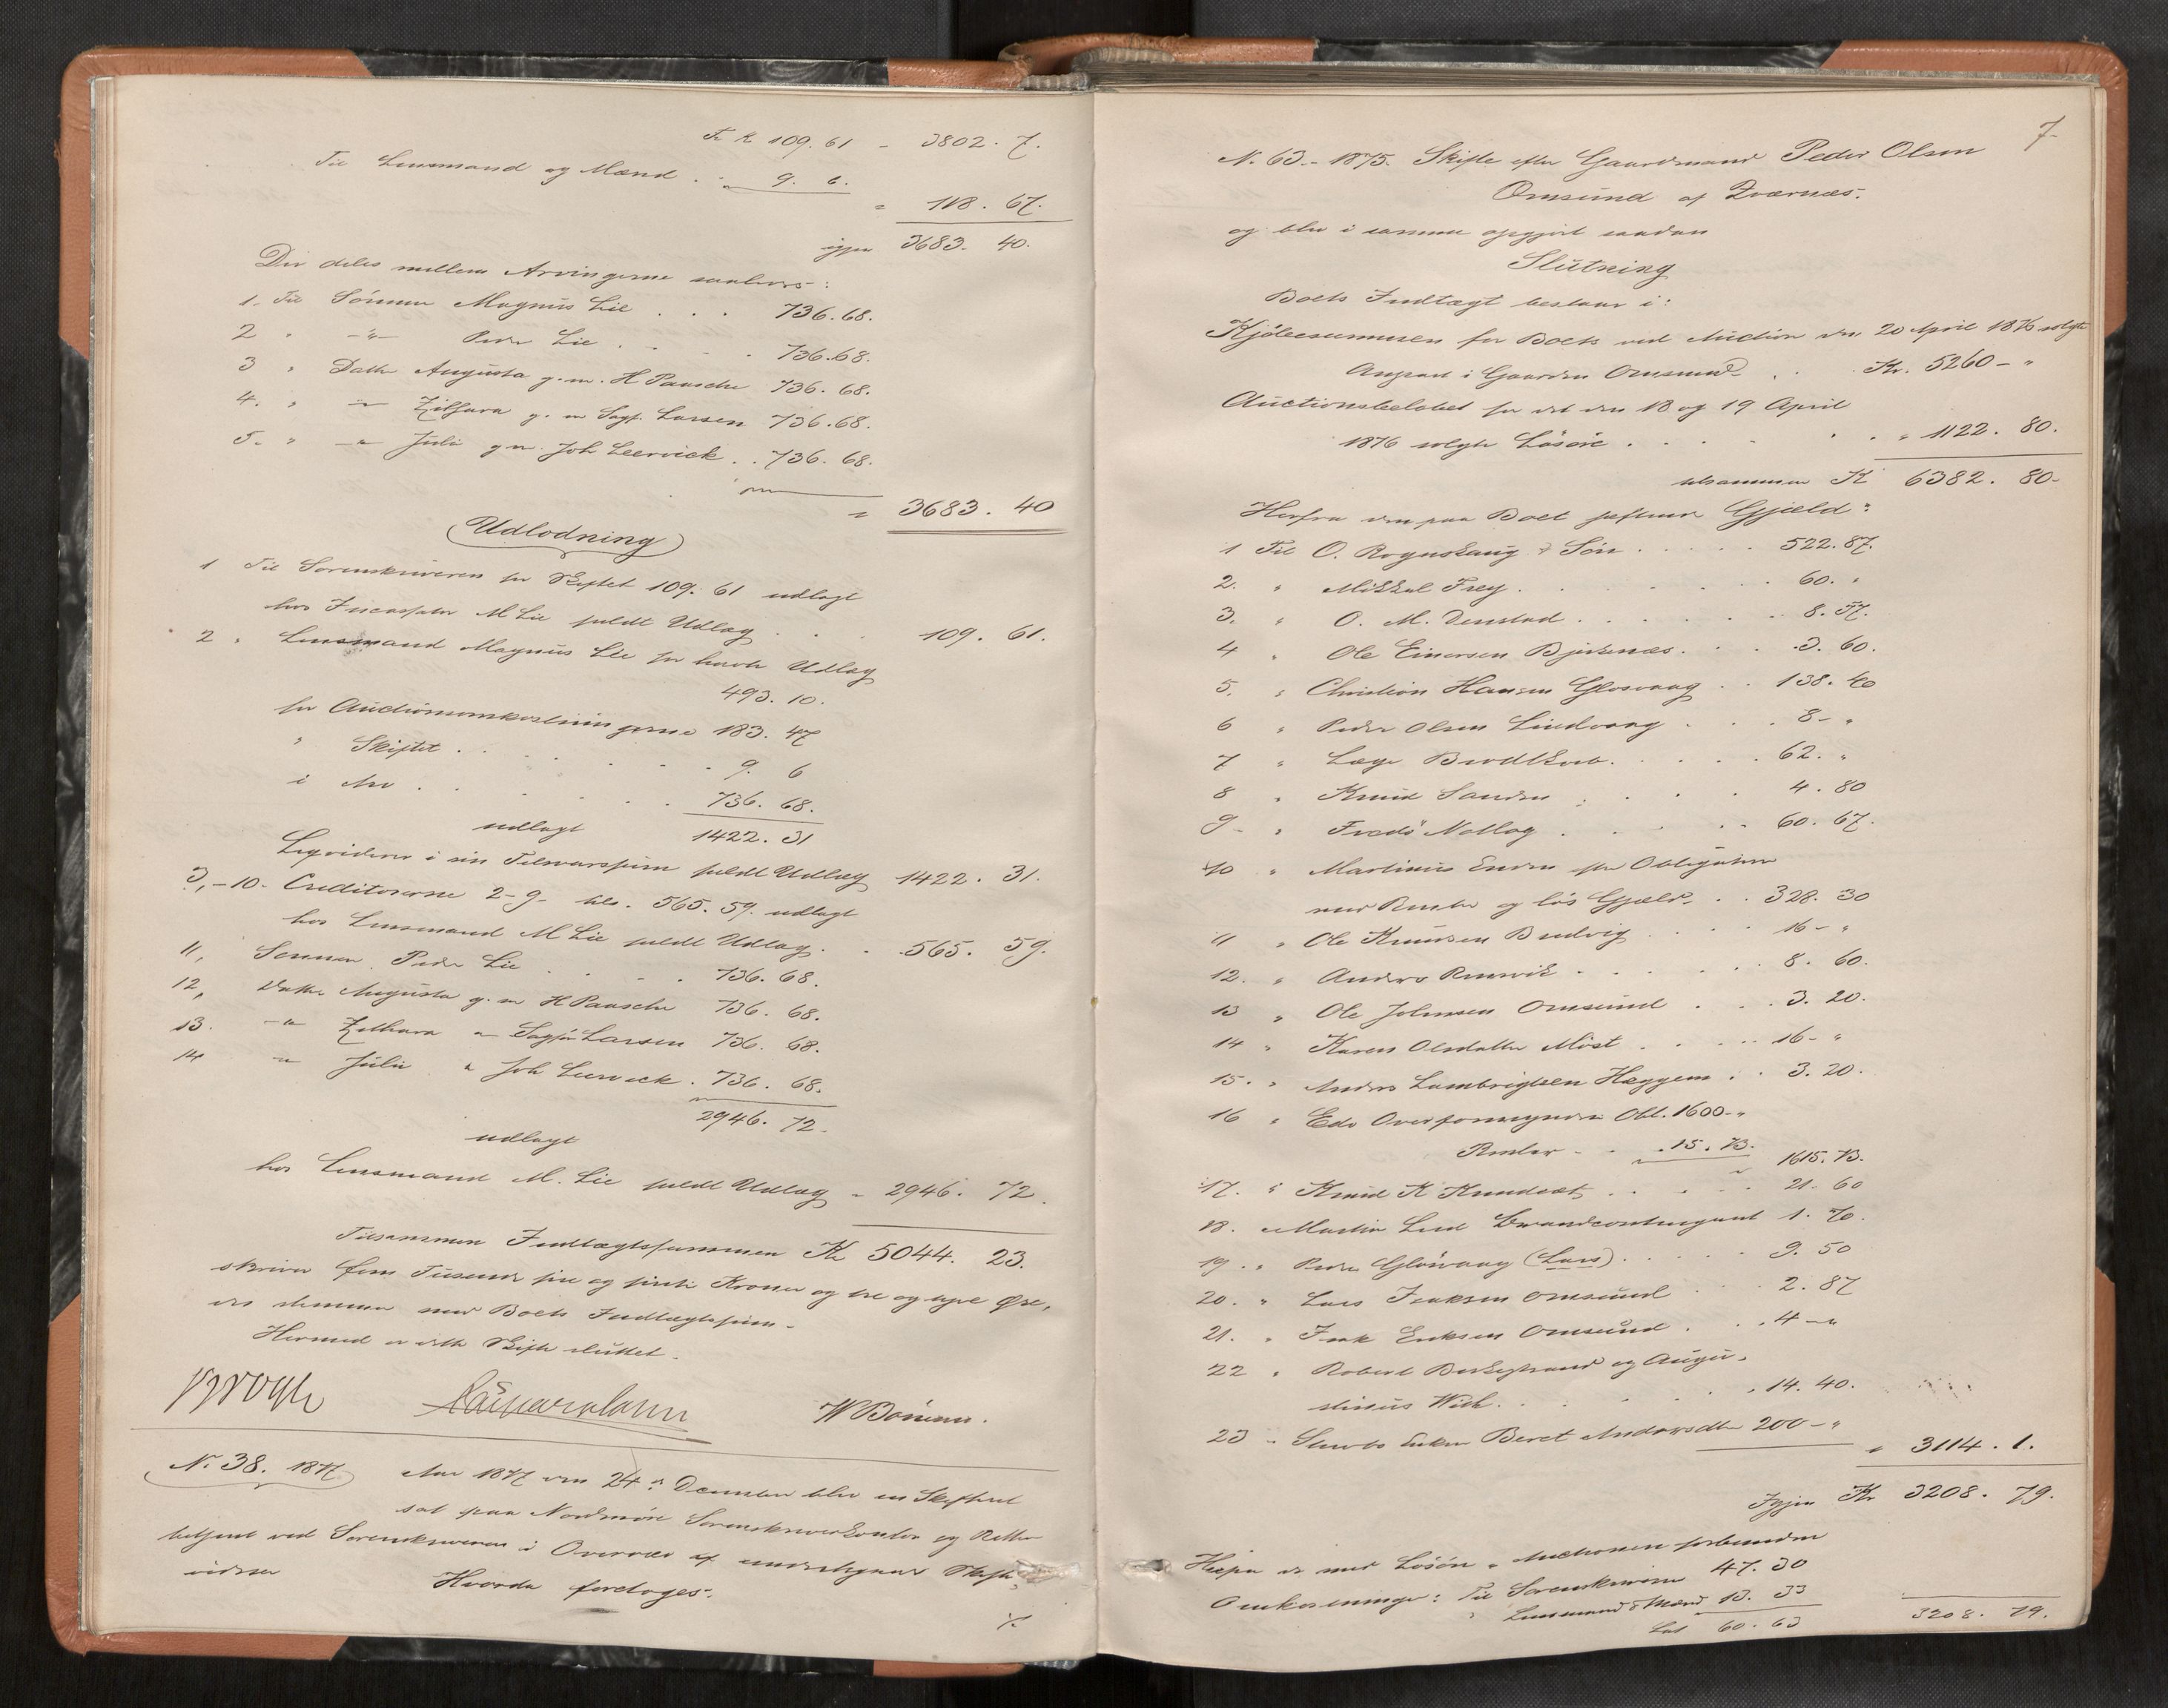 Fr. Kr 109. 61 - 3802. 7.
Til Lensmand og Mænd . . " 9. 6.
" 118. 67.
igjen 3683. 40.
Der deles mellem Arvingerne saaledes:
1. Til Sönnen Magnus Lie . . . 736. 68.
2 " -"- Peder Lie . . . . 736. 68.
3 " Datter Augusta g. m. H Paasche 736. 68.
4. " -"- Zilfara g. m Sagf. Larsen 736. 68.
5. " -"- Juli g m. Joh Leervick . . 736. 68.
" 3683. 40
Udlodning
1 Til Sorenskriveren for Skiftet 109. 61 udlagt
hos Incassator M Lie fuldt Udlæg . . . 109. 61.
2 " Lensmand Magnus Lie for havte Udlæg
493. 10.
for Auctionsomkostningerne 183. 47
" Skiftet . . . . . . 9. 6
i Arv . . . . . . 736. 68.
udlagt 1422. 31
Liqviderer i sin Tilsvarssum fuldt Udlæg 1422. 31.
3, - 10 - Creditorerne 2-9 - tils. 565. 59. udlagt
hos Lensmand M Lie fuldt Udlæg . . 565. 59.
11, Sönnen Peder Lie . . . . 736. 68.
12, Datter Augusta g. m H Paasche 736. 68.
13. -"- Zilfara " Sagfr Larsen 736. 68.
14 -"- Julie " Joh Leervick . 736. 68.
2946. 72 -
udlagt
hos Lensmand M. Lie fuldt Udlæg " 2946. 72.
Tilsammen Indtægtssummen Kr 5044. 23.
skriver fem Tusende fire og firti Kroner og tre og tyve Øre,
der stemmer med Boets Indtægtssum -
Hermed er dette Skifte sluttet.
W Boimann.
No 38. 1877 Aar 1877 den 24de December blev en Skifteret
sat paa Nordmøre Sorenskriverkontor og Retten
betjent ved Sorenskriveren i Overvær af undertegnede Skifte-
vidner Hvorda foretoges:
7
N. 63 - 1875. Skifte efter Gaardmand Peder Olsen
Omsund af Kværnæs.
og blev i samme opgjort saadan
Slutning
Boets Indtægt bestaar i:
Kjöbesummen for Boets ved Auction den 20 April 1876 solgte
Anpart i Gaarden Omsund . . Kr. 5260 - "
Auctionsbeløbet for det den 18 og 19 April
1876 solgte Lösöre . . . . . " 1122. 80.
tilsammen Kr 6382. 80 -
Herfra den paa Boet heftende Gjæld:
1 Til O. Rognskaug & Sön . . . . 522. 87.
2. " Mikkel Frey . . . . . . 60. "
3. " O. M. Denstad . . . . . . 8. 57.
4 " Ole Einersen Bjerknæs . . . 3. 60.
5. " Christian Hansen Glosvaag . . 138. 40
6 " Peder Olsen Lindvaag . . . 8 - "
7 " Læge Brodtkorb . . . . . 62. "
8 " Knud Sanden . . . . . 4. 80
9 - " Fredö Nollag . . . . . 60. 67.
10 " Martinus Enden for Obligation
med Renter og lös Gjæld . . 328. 30
11 " Ole Knudsen Budvig . . . . 16 - "
12. " Anders Renvik . . . . . . 8. 60.
13 " Ole Johnsen Omsund . . . 3. 20.
14 " Karen Olsdatter Möst . . . . 16 - "
15. " Anders Lambrigtsen Heggem . . 3. 20.
16 " Edö Overformynderi Obl. 1600 - "
Renter - . . 15. 73. " 1615. 73.
17. " Knud K Knudsen . . . . . 21. 60
18. " Martin Lied Brandcontingent 1. 70.
19. " Peder Glösvaag (Lars) . . . . 9. 50
20. " Lars Isaksen Omsund . . 2. 87
21. " Isak Eriksen Omsund . . . 4 - "
22 " Robert Berkestrand og Augu-
stinus With . . . . . . 14. 40.
23 - Stervbo Enken Beret Andersdtr 200 - "
" 3114. 1.
Igjen Kr 3208. 79.
Heraf de med Lösöre - Auctionen forbundne
Omkostninger: Til Sorenskriveren 47. 30
" Lensmand & Mænd 13. 33
Lat 60. 63 3208. 79.